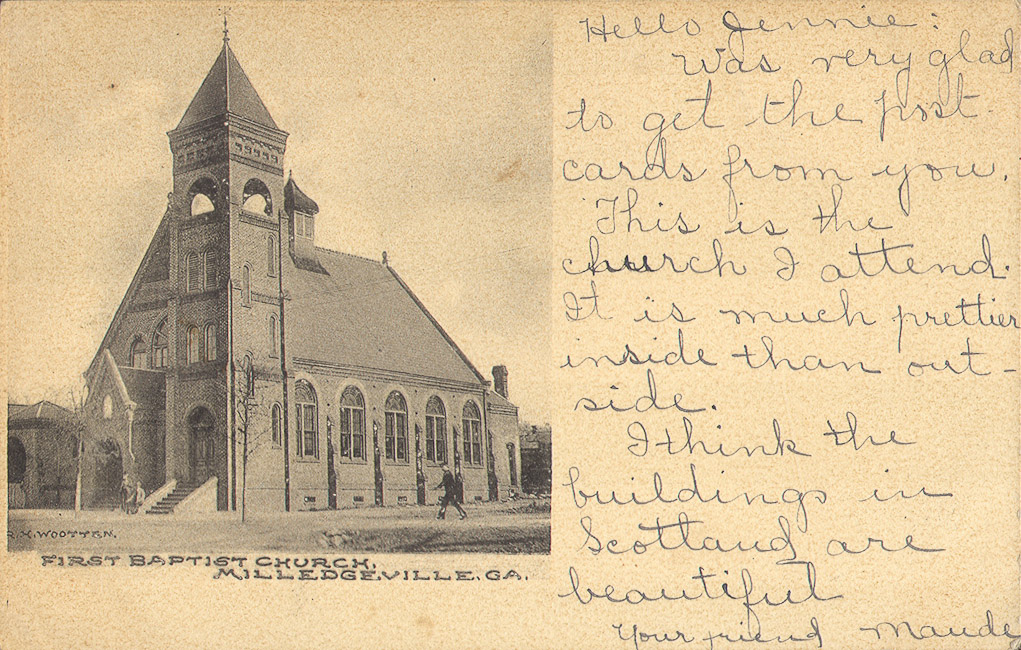 R. H. WOOTTEN.
FIRST BAPTIST CHURCH,
MILLEDGEVILLE, GA.
Hello Jennie:
Was very glad
to get the post
cards from you.
This is the
church I attend.
It is much prettier
inside than out-
side.
I think the
buildings in
Scotland are
beautiful
Your friend Maude